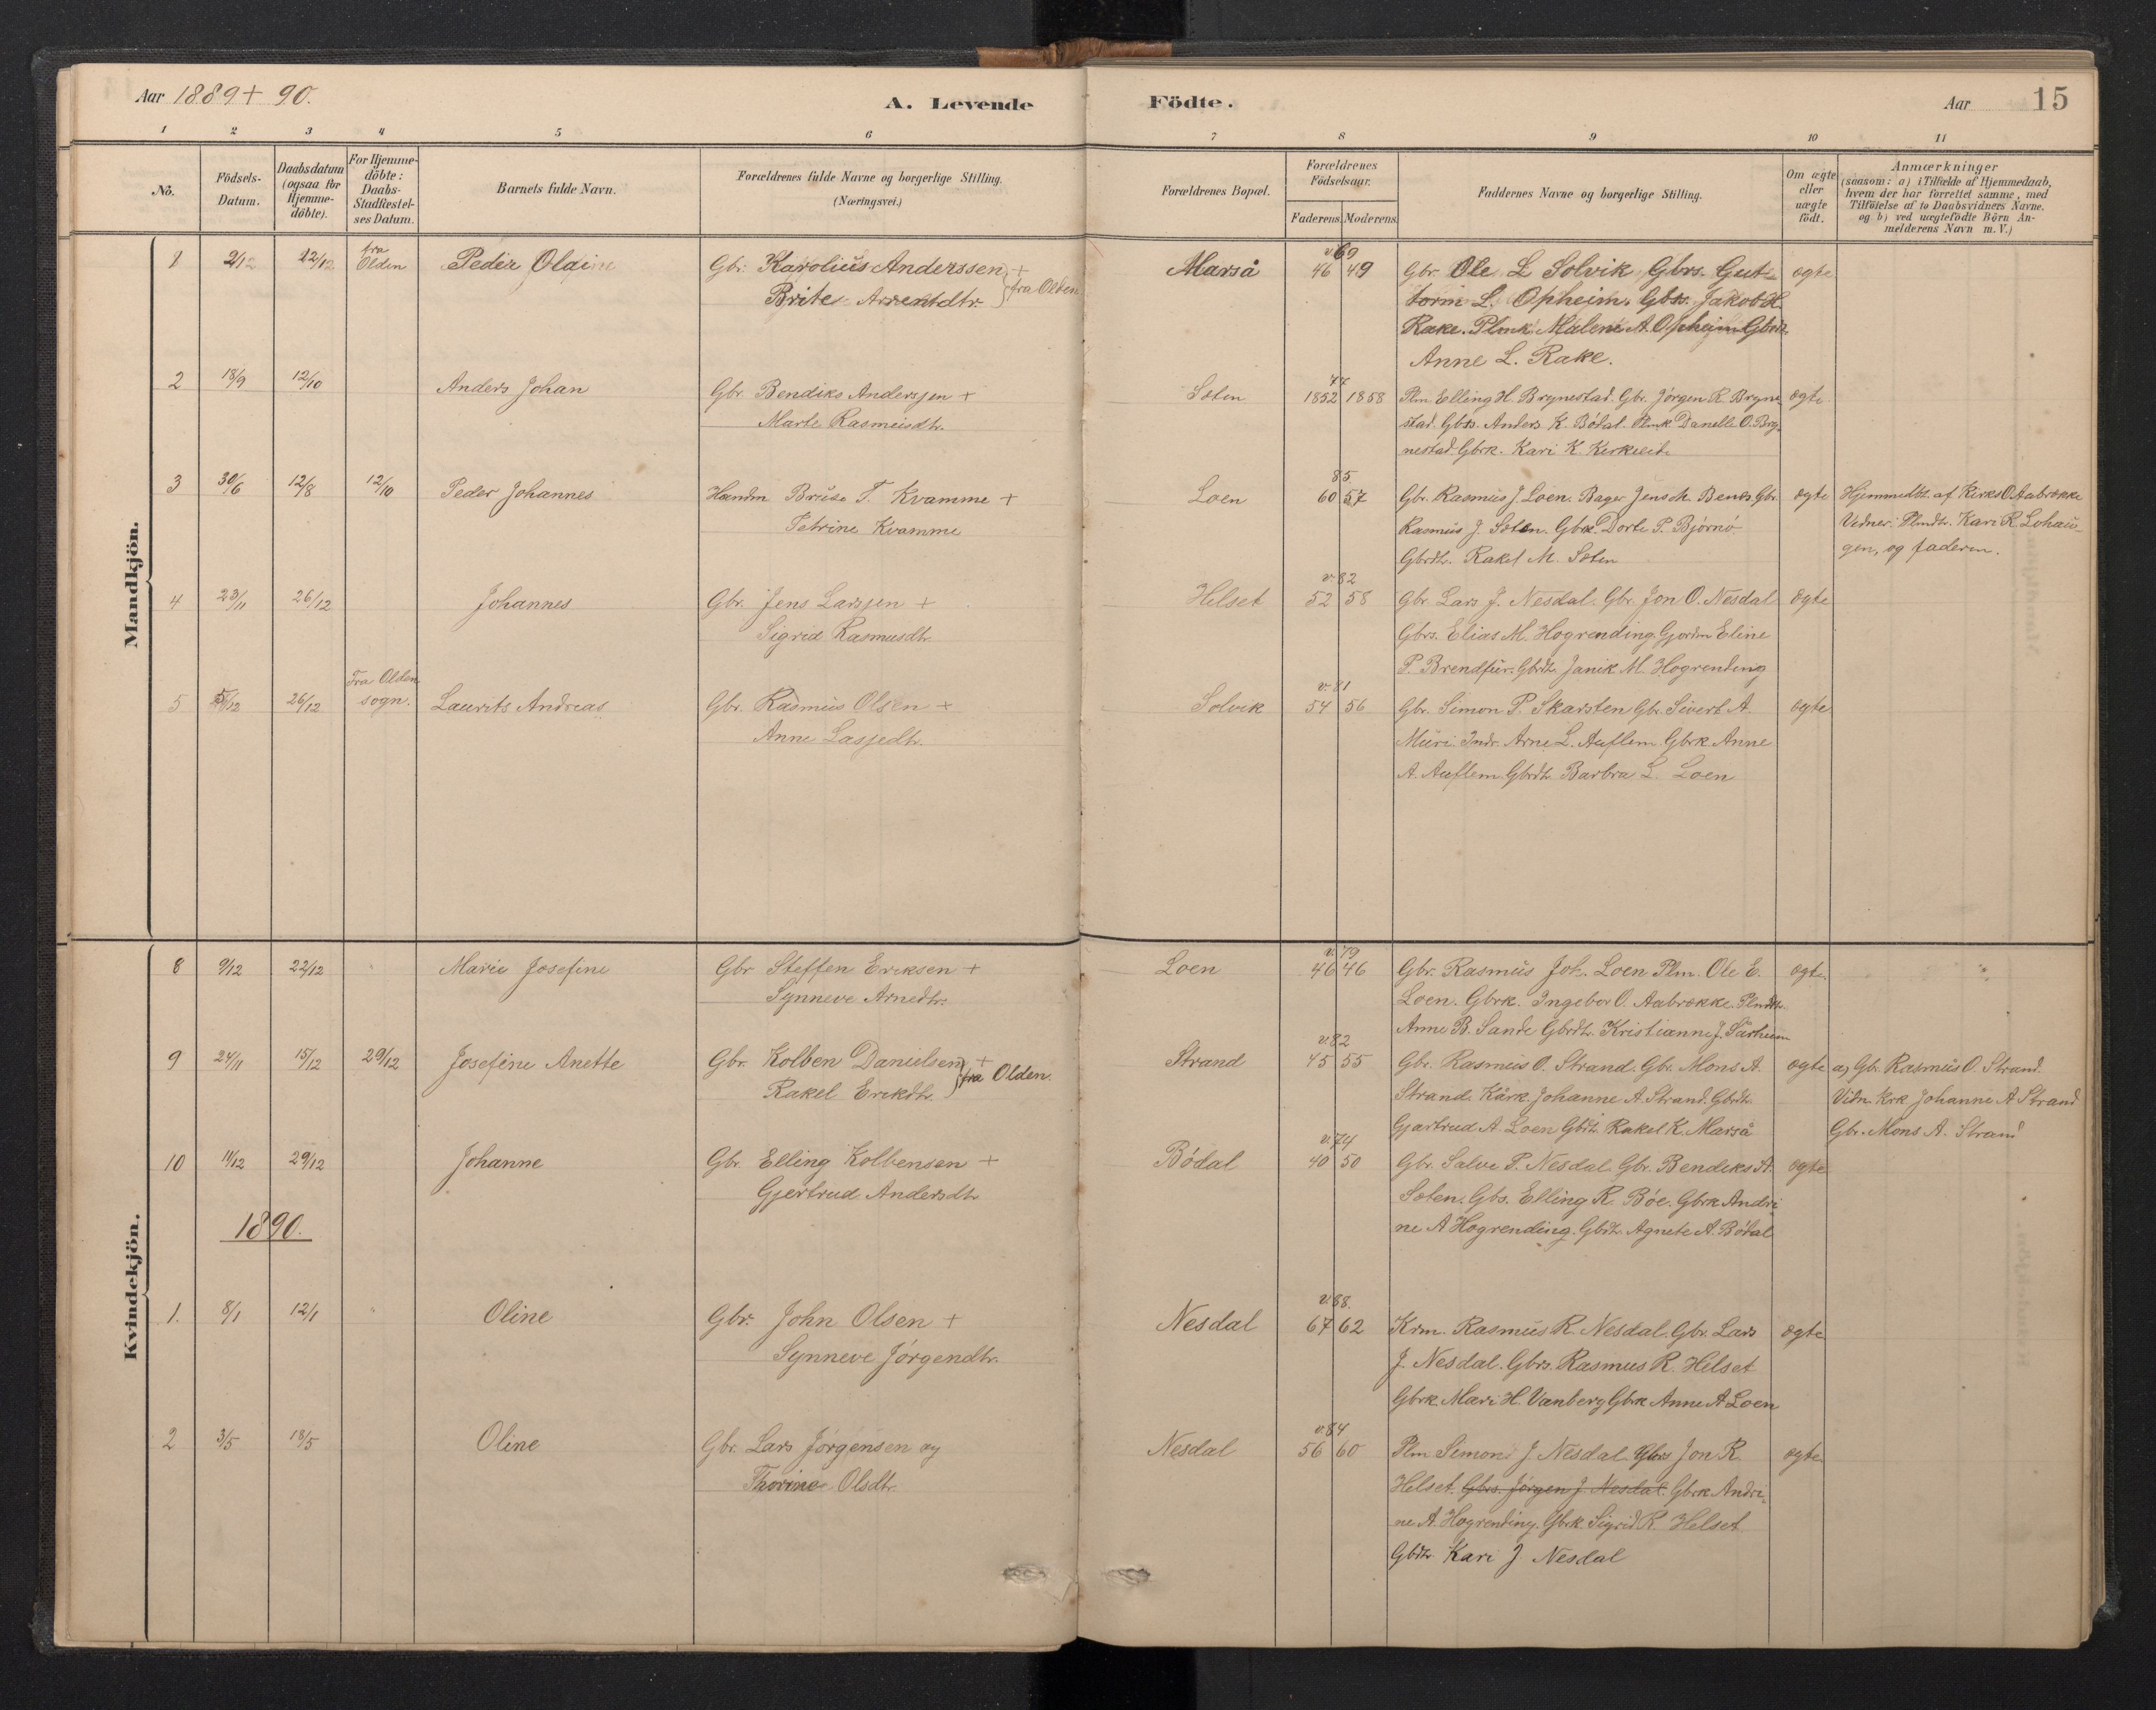 Aar 1889 + 90.
A. Levende Födte.
Aar 15
1 2 3 4 5 6 7 8 9 10 11
No.
Födsels-Datum.
Daabsdatum (ogsaa for Hjemme-döbte).
For Hjemme-döbte: Daabs-Stadfestel-ses Datum.
Barnets fulde Navn.
Forældrenes fulde Navne og borgerlige Stilling.
(Næringsvei.)
Forældrenes Bopæl.
Forældrenes Födselsaar.
Faderens. Moderens.
Faddernes Navne og borgerlige Stilling.
Om ægte eller uægte födt.
Anmærkninger
(saasom: a) i Tilfælde af Hjemmedaab,
hvem der har forrettet samme, med
Tilföielse af to Daabsvidners Navne.
og b) ved uægtefödte Börn An-
melderens Navn m. V.)
Mandkjön.
1 2/12 22/12 fra Olden Peder Olai Gbr. Karolius Anderssen + Marså v. 69 46 49 Gbr. Ole L Solvik Gbrs. Gut- ægte
Brite Arrentdtr. fra Olden torm L. Opheim. Gbrs. Jakob H.
Rake. Plmk. Malene A. Opheim Gbrdt.
Anne L. Rake.
2 18/9 12/10 Anders Johan Gbr. Bendiks Anderssen + Sæten 77 1852 1858 Plm. Elling H. Brynestad. Gbr. Jørgen R. Bryne- ægte
Marte Rasmusdtr. stad. Gbrs. Anders K. Bødal. Plmk. Danelle O. Bry-
nestad. Gbrk. Kari K.
3 30/6 12/8 12/10 Peder Johannes Husmdm Bruse T. Kvamme + Loen 85 60 57 Gbr. Rasmus J. Loen. Bager Jens Gbr. ægte Hjemmedbt. af Kirks O. Aabrække
Petrine Kvamme Rasmus J. Sæten. Gbrk. Dorte P. Bjørnø Vidner: Plmdtr. Kari R. Lohau-
Gbrdtr. Rakel M. Sæten gen, og faderen.
4 23/11 26/12 Johannes Gbr. Jens Larssen + Helset v. 82 52 58 Gbr. Lars J. Nesdal. Gbr. Jon O. Nesdal ægte
Sigrid Rasmusdtr. Gbrs. Elias M. Hogrending. Gjordm Eline
P. Brendfur. Gbrdt. Janik M. Hogrending
5 5/12 26/12 Fra Olden sogn. Laurits Andreas Gbr. Rasmus Olsen + Solvik v. 81 54 56 Gbr. Simon P. Skarsten Gbr. Sivert A. ægte
Anne Lassedtr. Muri. Indr. Arne L. Auflem Gbrk Anne
A. Auflem. Gbrdt. Barbra L. Loen
Kvindekjön.
8 9/12 22/12 Marie Josefine Gbr Steffen Eriksen + Loen v. 79 46 46 Gbr. Rasmus Joh. Loen Plm. Ole E. ægte
Synneve Arnedtr. Loen. Gbrk. Ingebor O. Aabrække. Plmdtr.
Anne B. Sande Gbrdt. Kristianne J. Sarheim
9 24/11 15/12 29/12 Josefine Anette Gbr. Kolben Danielsen + Strand v. 82 45 55 Gbr. Rasmus O. Strand. Gbr. Mons A. ægte a) Gbr. Rasmus O. Strand.
Rakel Erikdtr. fra Olden. Strand. Kårk. Johanne A. Strand. Gbrdtr. Vidn. Krk. Johanne A Strand
Gjartrud A. Loen Gbrdt. Rakel K. Marså Gbr. Mons A. Strand
10 11/12 29/12 Johanne Gbr. Elling Kolbensen + Bødal v. 74 40 50 Gbr. Salve P. Nesdal. Gbr. Bendiks A. ægte
Gjertrud Andersdtr Sæten. Gbs. Elling R. Bøe. Gbrk Andri-
1890. ne A Hogrending. Gbrdt. Agnete A. Bødal
1. 8/1 12/1 Oline Gbr. John Olsen + Nesdal v. 88. 67 62 Krm. Rasmus R. Nesdal. Gbr. Lars ægte
Synneve Jørgendtr. J. Nesdal. Gbrs. Rasmus R. Helset
Gbrk Mari H. Vanberg Gbrk Anne A Loen
2 3/5 18/5 Oline Gbr. Lars Jørgensen og Nesdal v. 84 56 60 Plm Simon J Nesdal. Gbrs Jon R. ægte
Thorine Olsdtr. Helset. Gbrs. Jørgen J. Nesdal. Gbrk Andri-
ne A. Hogrending. Gbrk Sigrid R. Helset
Gbdtr. Kari J Nesdal